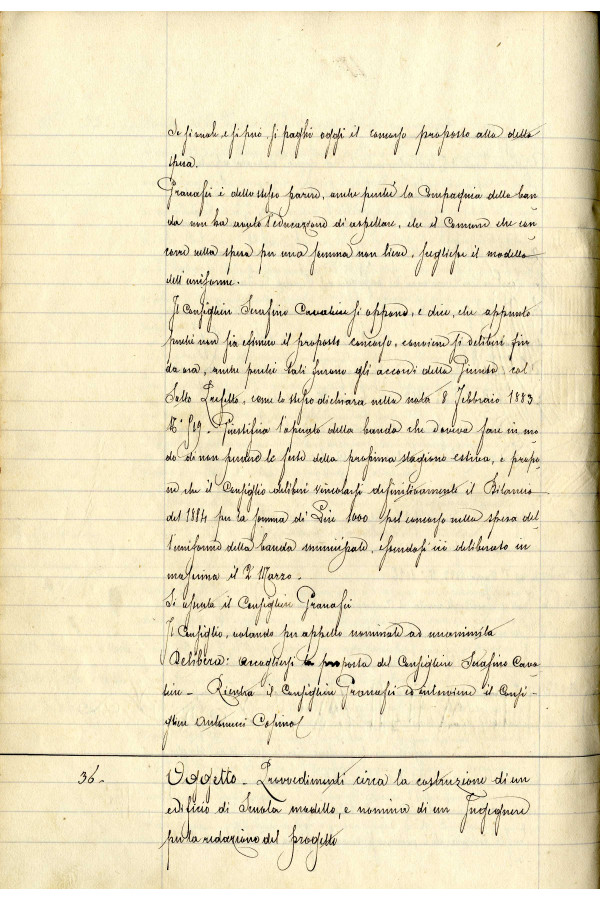 si paghi oggi il concorso proposto alla detta
spesa.
Granafei è dello stesso parere, anche perchè la Compagnia della ban-
da non ha avuto l'educazione di aspettare, che il Comune che con-
corre nella spesa per una somma non lieve, scegliesse il modello
dell'uniforme.
Il Consigliere Serafino Cavaliere si oppone, e dice, che appunto
perchè non sia effimero il proposto concorso, conviene si deliberi fin
da ora, anche perchè tali furono gli accordi della Giunta col
Sotto Prefetto, come lo stesso dichiara nella nota 8 Febbraio 1883
N° 519. Giustifica l'operato della banda che doveva fare in mo-
do di non perdere le feste della prossima stagione estiva, e propo-
ne che il Consiglio deliberi vincolarsi definitivamente il Bilancio
del 1884 per la somma di Lire 1000 pel concorso nella spesa del-
l'uniforme della banda municipale, essendosi ciò deliberato in
massima il 2 Marzo.
Si assenta il Consigliere Granafei
Il Consiglio, votando per appello nominale ad unanimità
Delibera: accogliersi la proposta del Consigliere Serafino Cava-
liere - Rientra il Consigliere Granafei ed interviene il Consi-
gliere Antonucci Cosimo
36. Oggetto - Provvedimenti circa la costruzione di un
edificio di Scuola modello, e nomina di un Ingegnere
per la redazione del progetto